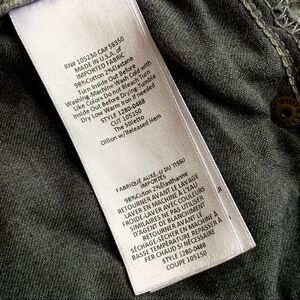 RN# 105230 CA# 58350
MADE IN U.S.A. of
IMPORTED FABRIC
98%Cotton 2%Elastane
Turn Inside Out Before
Washing.Machine Wash Cold with
Like Colors Do not Bleach.Turn
Inside Out Before Drying.Tumble
Dry Low Warm Iron if needed
STYLE 1280-0488
CUT 105150
The Stiletto
Dillon w/Released Hem
FABRIQUÉ AUX É.-U DU TISSU
IMPORTÉS
98%COTON 2%Élasthanne
RETOURNER AVANT LE LAVAGE
LAVER EN MACHINE À L'EAU
FROIDE-LAVER AVEC COULEURS
SIMILAIRES NE PAS UTILISER
D'AGENT DE BLANCHIMENT
RETOURNER AVANT LE
SÉCHAGE-SÉCHER EN MACHINE À
BASSE TEMPÉRATURE REPASSER
FER CHAUD SI NÉCESSAIRE
STYLE 1280-0488
COUPE 105150